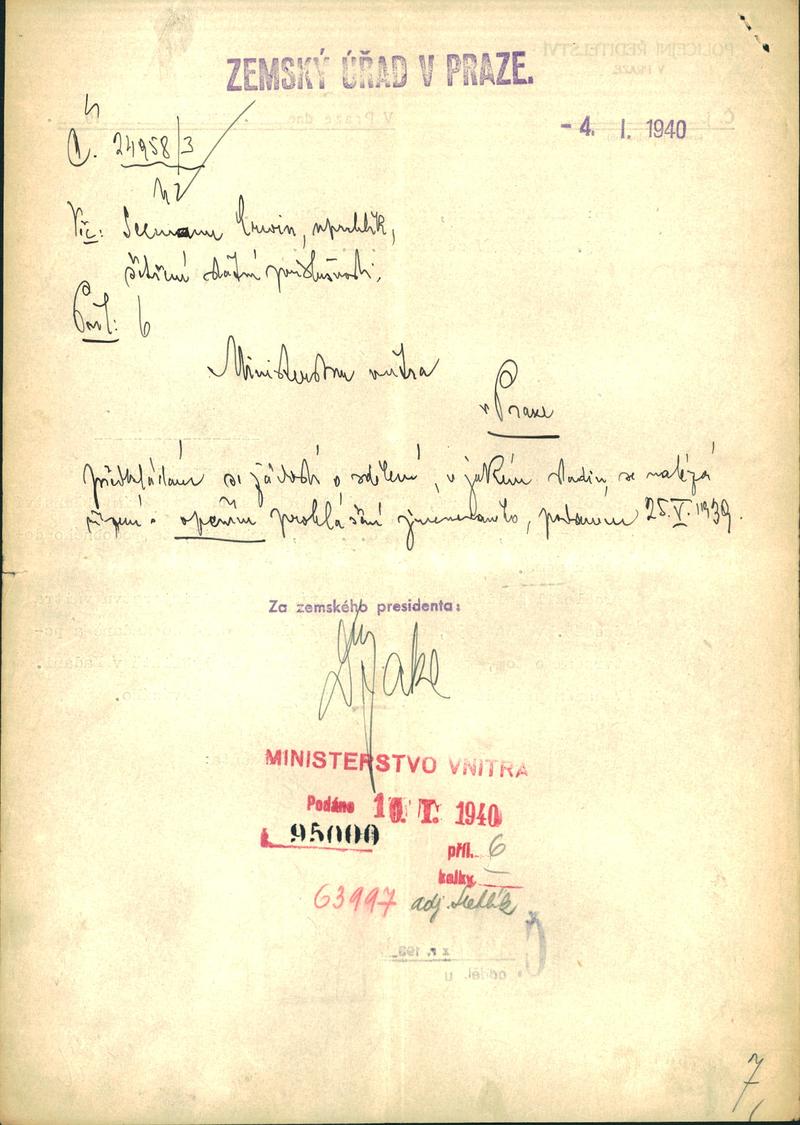 ZEMSKÝ ÚŘAD V PRAZE.
- 4. I. 1940
Č. 24958/3
Věc: Seemann Erwin, republik,
šetření státní příslušnosti.
Příl: 6
Ministerstvu vnitra
v Praze
předkládám se žádostí o sdělení, v jakém stadiu se nalézá
řízení o opčním prohlášení jmenovaného, podaném 25.V.1939.
Za zemského presidenta:
MINISTERSTVO VNITRA
Podáno 10. I. 1940
95000
příl. 6
kolky —
63997 adj.
7